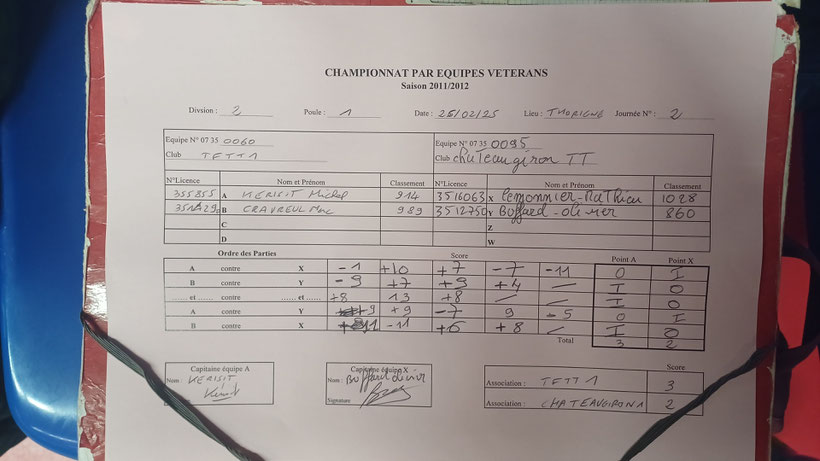 CHAMPIONNAT PAR EQUIPES VETERANS
Saison 2011/2012
Divsion : 2 Poule : 1 Date : 25/02/25 Lieu : THORIGNE Journée N° : 2
Equipe N° 07 35 0060 Equipe N° 07 35 0095
Club TFTT1 Club Chateaugiron TT
N°Licence Nom et Prénom Classement N°Licence Nom et Prénom Classement
355855 A KERISIT Michel 914 3516063 X Lemonnier-Mathieu 1028
B CRAVREUL Marc 989 3512750 Y Boffard-olivier 860
C Z
D W
Ordre des Parties Score Point A Point X
A contre X -1 +10 +7 -7 -11 0 I
B contre Y -9 +7 +9 +4 / I 0
...... et ....... contre ...... et ...... +8 13 +8 / / I 0
A contre Y +9 +9 -7 9 -5 0 I
B contre X 11 -11 +6 +8 / I 0
Total 3 2
Capitaine équipe A Capitaine équipe X Score
Nom : KERISIT Nom : Boffard olivier Association : TFTT1 3
Signature Association : CHATEAUGIRON 1 2